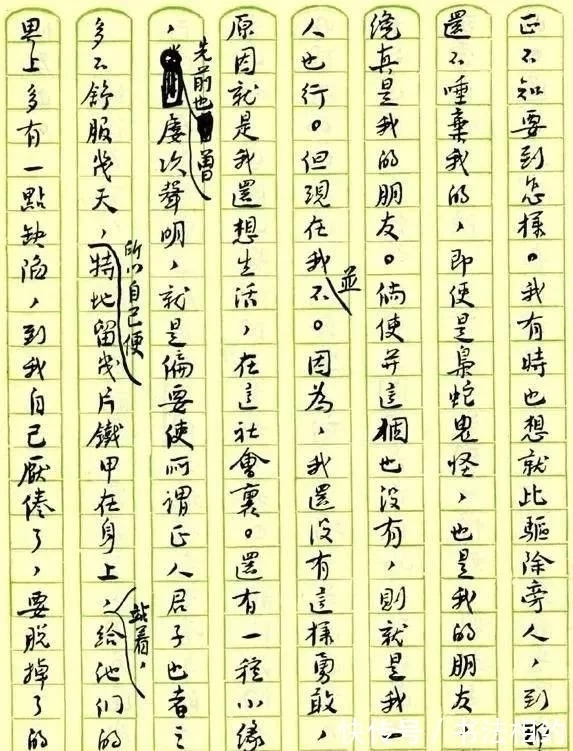 正不知要到怎樣。我有時也想就此驅除旁人,到那
還不唾棄我的,即使是梟蛇鬼怪,也是我的朋友
纔真是我的朋友。倘使并這個也沒有,則就是我一
人也行。但現在我並不。因為,我還沒有這樣勇敢,
原因就是我還想生活,在這社會裏。還有一種小緣
,先前也曾屢次聲明,就是偏要使所謂正人君子也者之
多不舒服幾天,所以自己便特地留幾片鐵甲在身上,站着,給他們的
界上多有一點缺陷,到我自己厭倦了,要脫掉了的
快传号/书法相约